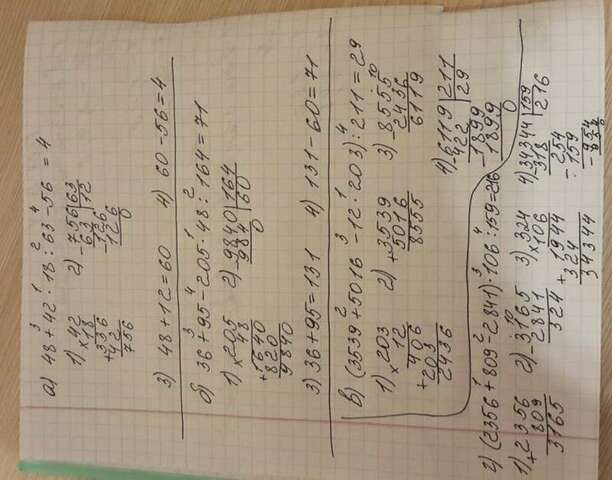 а) 48 + 42 · 18 : 63 - 56 = 4
3 1 2 4
1) × 42
18
336
+ 42
756
2) - 756 | 63
63 | 12
- 126
126
0
3) 48 + 12 = 60
4) 60 - 56 = 4
б) 36 + 95 - 205 · 48 : 164 = 71
3 4 1 2
1) × 205
48
+ 1640
820
9840
2) - 9840 | 164
984 | 60
0
3) 36 + 95 = 131
4) 131 - 60 = 71
в) (3539 + 5016 - 12 · 203) : 211 = 29
2 3 1 4
1) × 203
12
406
+ 203
2436
2) + 3539
5016
8555
3) - 8555
2436
6119
4) - 6119 | 211
422 | 29
- 1899
1899
0
г) (2356 + 809 - 2841) · 106 : 159 = 216
1 2 3 4
1) + 2356
809
3165
2) - 3165
2841
324
3) × 324
106
1944
+ 324
34344
4) - 34344 | 159
318 | 216
- 254
159
- 954